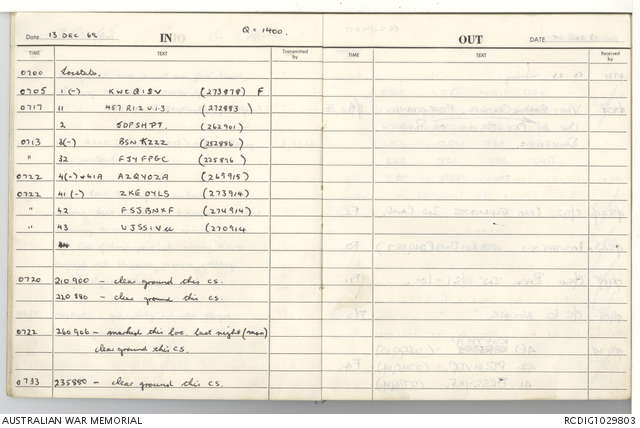 Date 13 DEC 68 IN Q = 1400.
TIME TEXT Transmitted by
0700 Locstats.
0705 1 (-) KWCQISV (273878) F
0717 11 457 RIZUIJ (272883)
2 SDPSHPT. (262901)
0713 3(-) BSNKZZZ (252886)
" 32 FJYFPGC (225876)
0722 4(-) & 41A AZQYOZA (269915)
0722 41 (-) ZKEOYLS (273914)
" 42 FSJBNXF (274914)
" 43 (270914
0720 210900 - clear ground this CS.
220880 - clear ground this CS.
0722 260906 - marked this loc last night (man)
clear ground this CS.
0733 235880 - clear ground this CS.
OUT DATE
TIME TEXT Received by
AUSTRALIAN WAR MEMORIAL RCDIG1029803